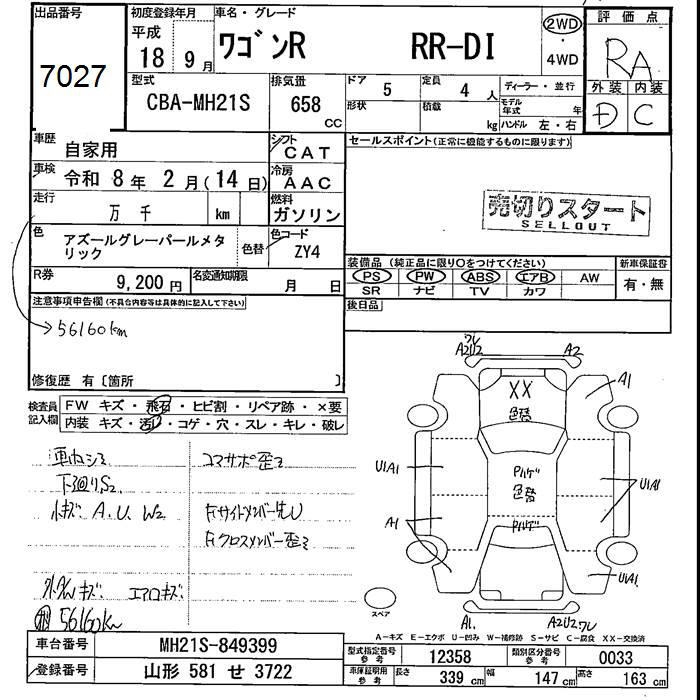 出品番号
7027
初度登録年月
平成
18年 9月
車名・グレード
ワゴンR RR-DI
2WD
・
4WD
評価点
RA
外装 内装
D C
型式
CBA-MH21S
排気量
658 CC
ドア
5
形状
定員
4 人
積載
kg
ディーラー・並行
モデル年式 年
ハンドル 左・右
車歴
自家用
シフト
CAT
車検
令和 8年 2月(14日)
冷房
AAC
走行
万 千 km
燃料
ガソリン
色
アズールグレーパールメタリック
色替
色コード
ZY4
R券
9,200 円
名変通知期限
月 日
セールスポイント(正常に機能するものに限ります)
売切りスタート
SELLOUT
装備品 (純正品に限り○をつけてください)
PS PW ABS エアB AW
SR ナビ TV カワ
新車保証書
有・無
後日品
注意事項申告欄(不具合内容等は具体的に記入して下さい)
→56160km
修復歴 有〔箇所 〕
検査員記入欄
FW キズ・飛石・ヒビ割・リペア跡・×要
内装 キズ・汚れ・コゲ・穴・スレ・キレ・破レ
下廻りS2
小キズ A.U. W2
コアサポ歪ミ
Fクロスメンバー歪ミ
エアロキズ
56160km
A2U2 ワレ
A2
XX
色替
A1
U1A1
Pハゲ
色替
U1A1
A1
Pハゲ
U1A1
スペア
A1
A2U2 ワレ
A-キズ E-エクボ U-凹み W-補修跡 S-サビ C-腐食 XX-交換済
車台番号
MH21S-849399
登録番号
山形 581 せ 3722
型式指定番号 参考
12358
類別区分番号 参考
0033
車庫証明用 参考
長さ 339 cm
幅 147 cm
高さ 163 cm